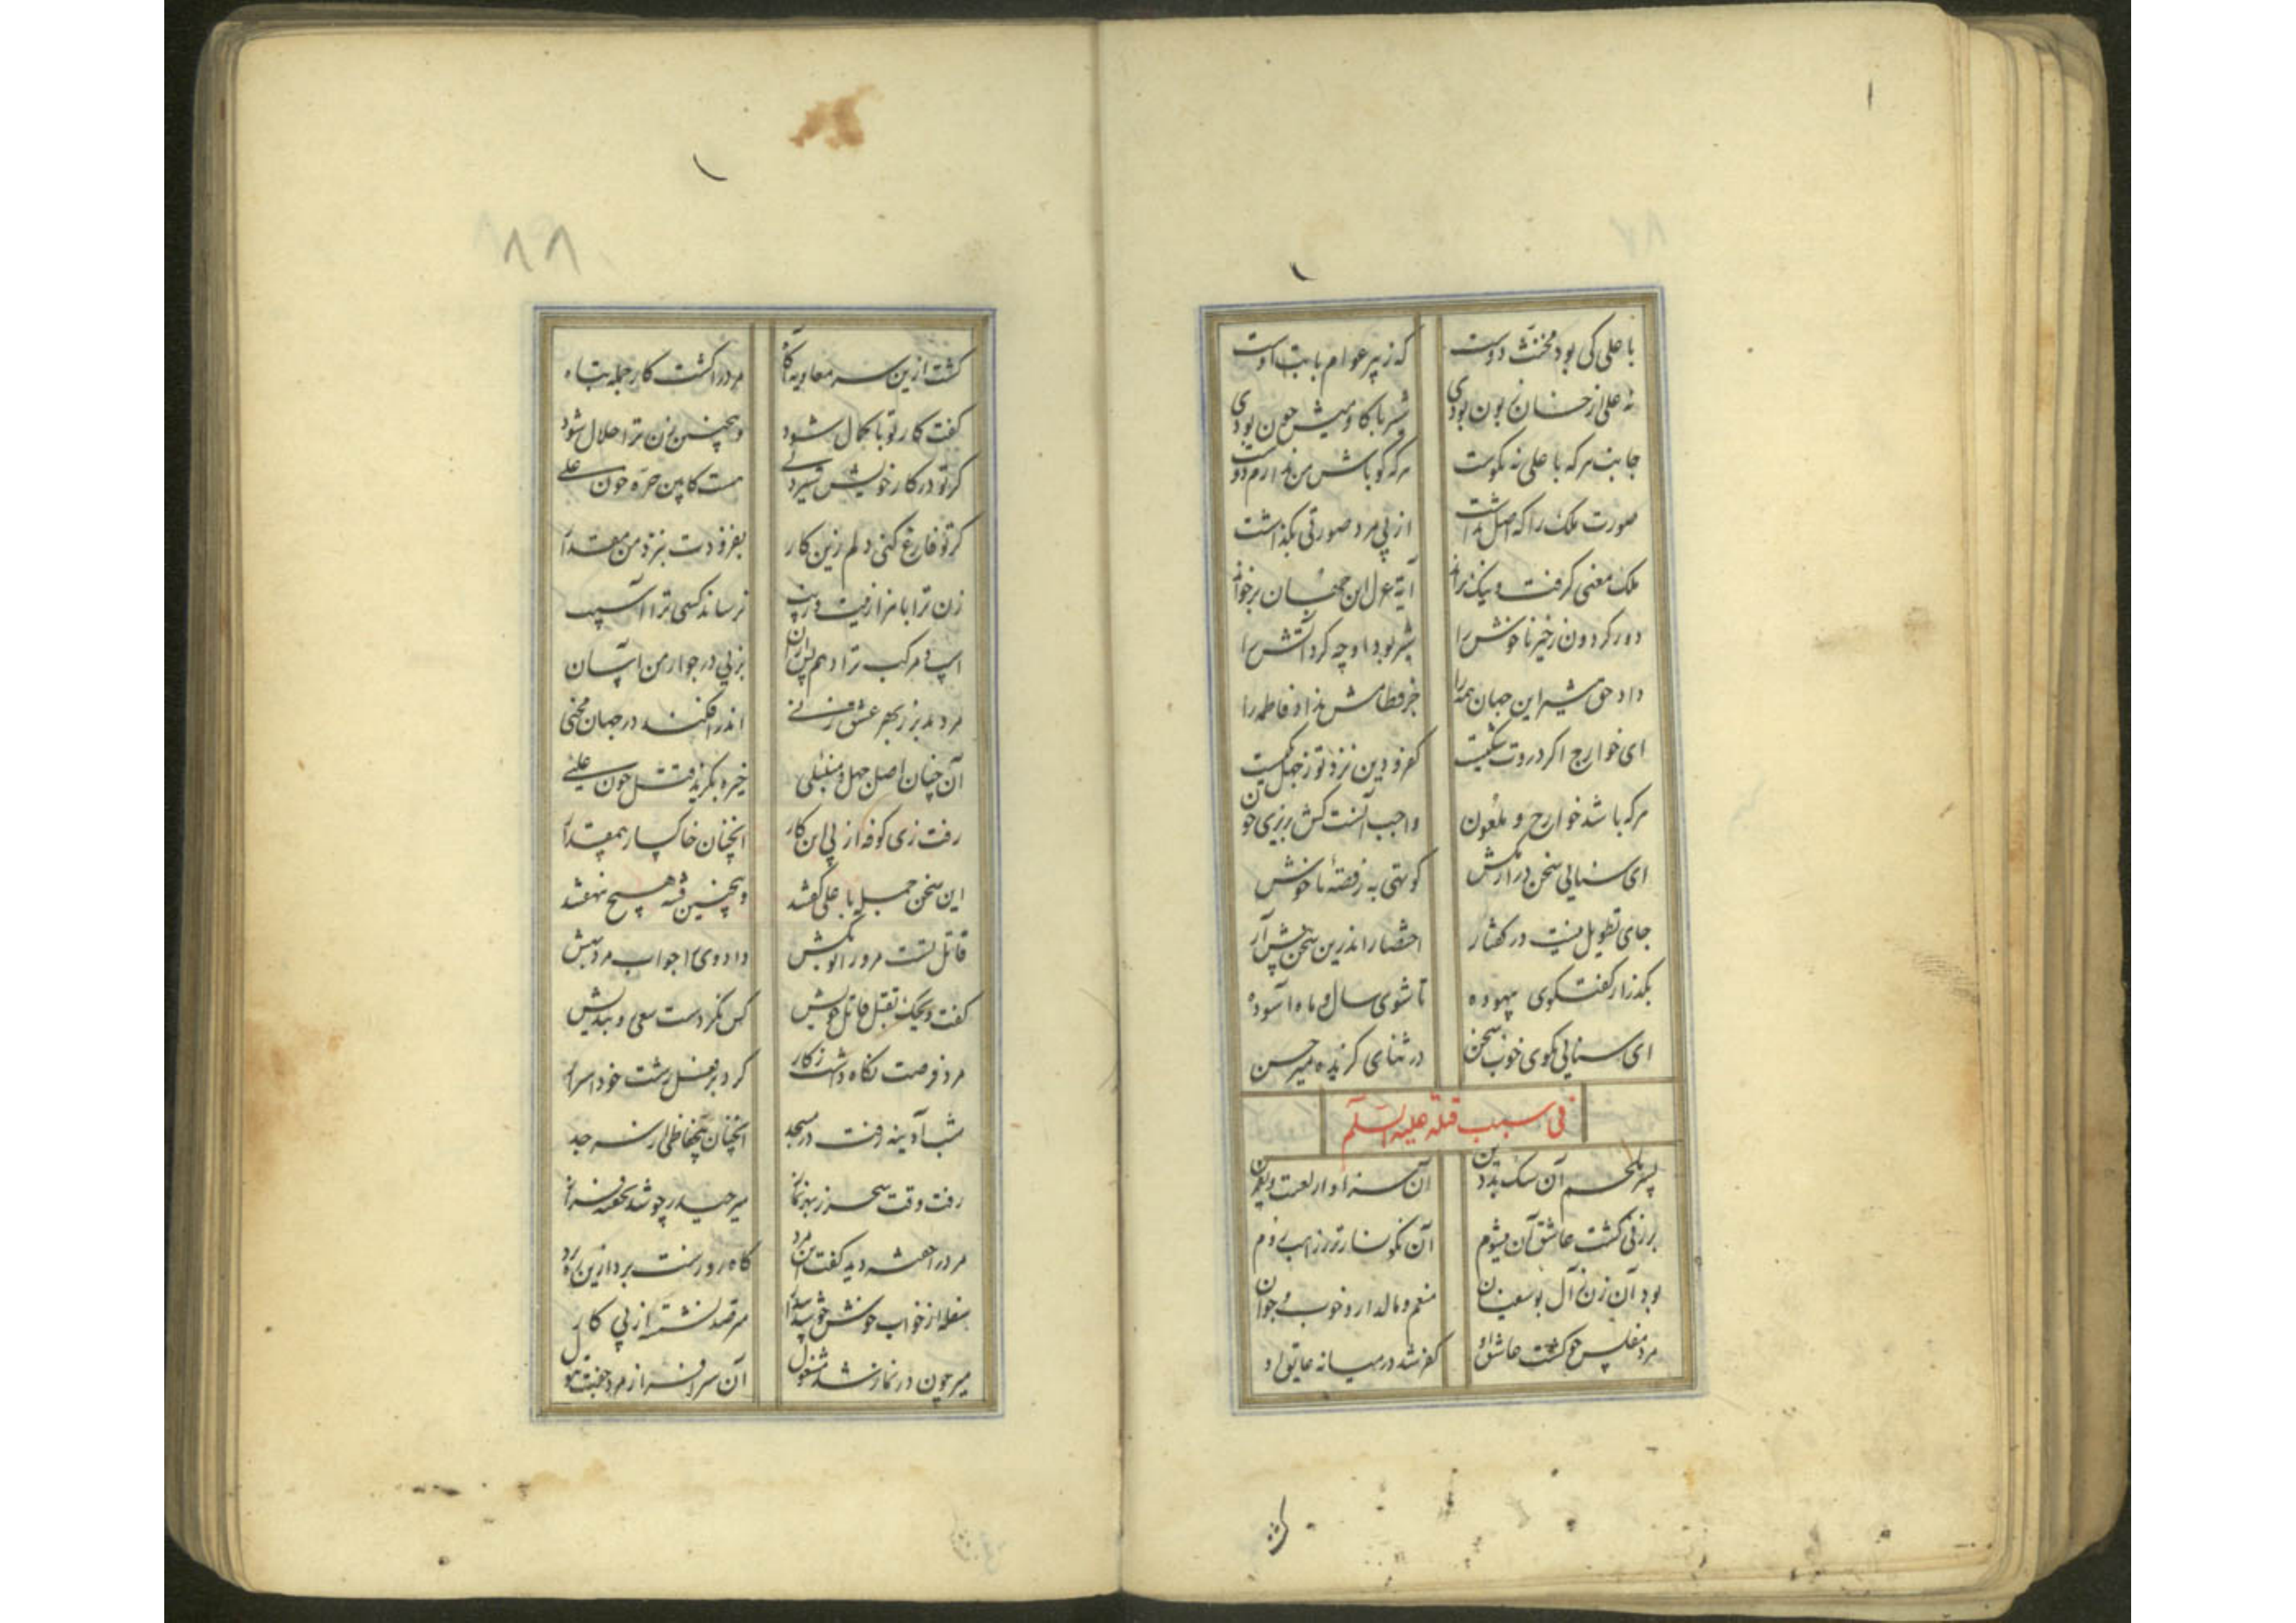 با علی کی بود مخنث دوست که ز پیر عوام بابت اوست
نه علی از خسان زبون بودی شیر با گاومیش چون بودی
جانب هر که با علی نه نکوست هر که گو باش من ندارم دوست
صورت ملک را که اصل نداشت از پی مرد صورتی بگذاشت
ملک معنی گرفت و نیک براند آیهٔ عزل این جهان برخواند
دور گردون زخیر ناخوش را شیر بود او چه کرد آتش را
داد حق شیر این جهان همه را جز فطامش نداد فاطمه را
ای خوارج اگر درونت شکیست کفر و دین نزد تو ز جهل یکیست
هر که باشد خوارج و ملعون واجب آنست کش بریزی خون
ای سنایی سخن دراز مکش کوتهی به ز قصهٔ ناخوش
جای تطویل نیست در گفتار اختصار اندرین سخن پیش آر
بگذر از گفتگوی بیهوده تا شوی سال و ماه آسوده
ای سنایی بگوی خوب سخن در ثنای گزیده میر حسن
فی سبب قتله علیه السلام
پسر ملجم آن سگ بد دین آن سزاوار لعنت و نفرین
بر زنی گشت عاشق آن میشوم آن نگونسارتر ز راهب روم
بود آن زن ز آل بوسفیان منعم و مالدار و خوب و جوان
مرد مفلس چو گشت عاشق او کفر شد در میانه عایق او
۸۸
گشت ازین سر معاویه آگاه مرد را گشت کار جمله تباه
گفت کار تو با کمال شود وینچنین زن ترا حلال شود
گر تو در کار خویش شیردلی هست کابین حره خون علی
گر تو فارغ کنی دلم زین کار بفزودت بنزد من مقدار
زن ترا با هزار زینت و زیب نرساند کسی ترا آسیب
اسب و مرکب ترا دهم پس ازان بزیی در جوار من آسان
مرد بد بر ز بهر عشق زنی اندر افکند در جهان محنی
آن چنان اصل جهل و منبلی خیره بگزید قتل چون علی
رفت زی کوفه از پی این کار آنچنان خاکسار بیمقدار
این سخن جمله با علی گفتند وینچنین قصه هیچ ننهفتند
قاتل تست مرورا تو بکش داد وی را جواب مرد بهش
گفت ویحک بقتل قاتل خویش کس نکردست سعی و بد اندیش
مرد فرصت نگاه داشت ز کار کرد بر فعل زشت خود اسرار
شب آدینه رفت در مسجد آنچنان بیحفاظی از سر جد
رفت وقت سحر ز بهر نماز میر حیدر چو شد بخفته فراز
مرد را خفته دید گفت ای مرد گاه روزست بر دار زین ره
سفله از خواب خوش چو شد بیدار مترصد نشست از پی کار
میر چون در نماز شد مشغول آن سرافراز مرد جفت بتول